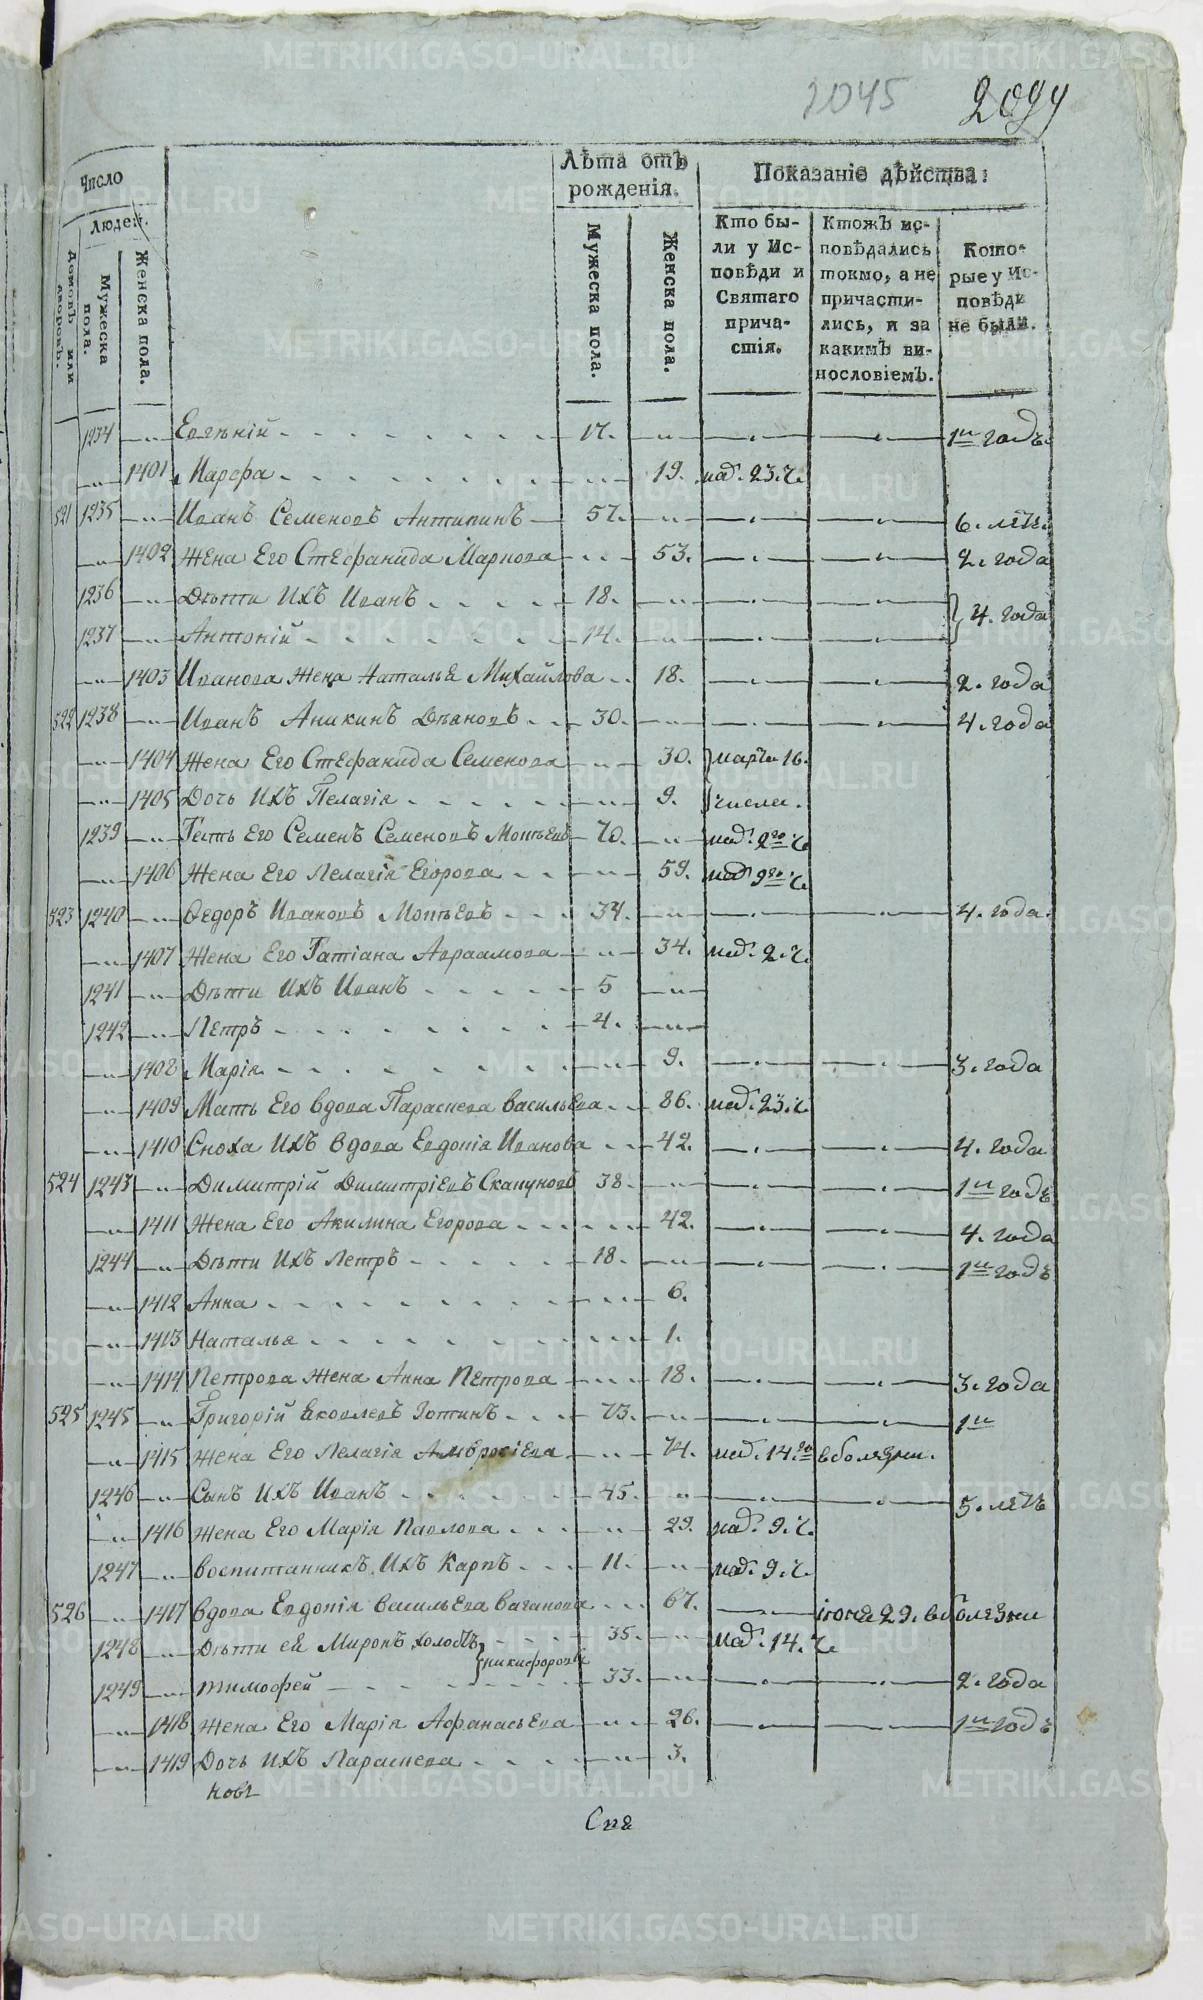 2045 2094
Число
людей.
Домовъ или дворовъ.
Мужеска пола.
Женска пола.
Лѣта отъ рожденія.
Мужеска пола.
Женска пола.
Показаніе дѣйства:
Кто бы-
ли у Ис-
повѣди и
Святаго
прича-
стія.
Ктожъ ис-
повѣдались
токмо, а не
причасти-
лись, и за
какимъ ви-
нословіемъ.
Кото-
рые у Ис-
повѣди
не были.
1234 Евгѣній 17. 1й годъ.
1401 Марфа 19. маї. 23. ч.
521 1235 Иванъ Семеновъ Антипинъ 57. 6. лѣтъ.
1402 Жена Его Стефанида Маркова 53. 2. года
1236 Дѣти Ихъ Иванъ 18. } 4. года
1237 Антоній 14.
1403 Иванова Жена Наталья Михайлова 18. 2. года
522 1238 Иванъ Аникинъ Деяновъ 30. 4. года
1404 Жена Его Стефанида Семенова 30. } марта 16.
1405 Дочь Ихъ Пелагія 9. числа.
1239 Тесть Его Семенъ Семеновъ Мотъевъ 70. 2го ч.
1406 Жена Его Пелагія Егорова 59. 9го ч.
523 1240 Ѳедоръ Ивановъ Мотьевъ 34. 4. года.
1407 Жена Его Татіана Авраамова 34. 2. ч.
1241 Дѣти Ихъ Иванъ 5
1242 Петръ 4.
1408 Марія 9. 3. года
1409 Мать Его вдова Параскева Васильева 86. 23. ч.
1410 Сноха Ихъ вдова Евдокія Иванова 42. 4. года
524 1243 Димитрій Димитріевъ Скакуновъ 38. 1й годъ
1411 Жена Его Акилина Егорова 42. 4. года
1244 Дѣти Ихъ Петръ 18. 1й годъ
1412 Анна 6.
1413 Наталья 1.
1414 Петрова Жена Анна Петрова 18. 3. года
525 1245 Григорій Яковлевъ Зотинъ 73. 1й
1415 Жена Его Пелагія Амвросіева 74. 14.го в болѣзни.
1246 Сынъ Ихъ Иванъ 45. 5. лѣтъ
1416 Жена Его Марія Павлова 29. 9. ч.
1247 Воспитанникъ Ихъ Карпъ 11. 9. ч.
526 1417 Вдова Евдокія Васильева Ваганова 67. іюня 29. в болѣзни
1248 Дѣти ея Миронъ холостъ } никифоровы 35. 14. ч.
1249 Тимофей 33. 2. года
1418 Жена Его Марія Афанасьева 26. 1й годъ
1419 Дочь Ихъ Параскева 3.
METRIKI.GASO-URAL.RU